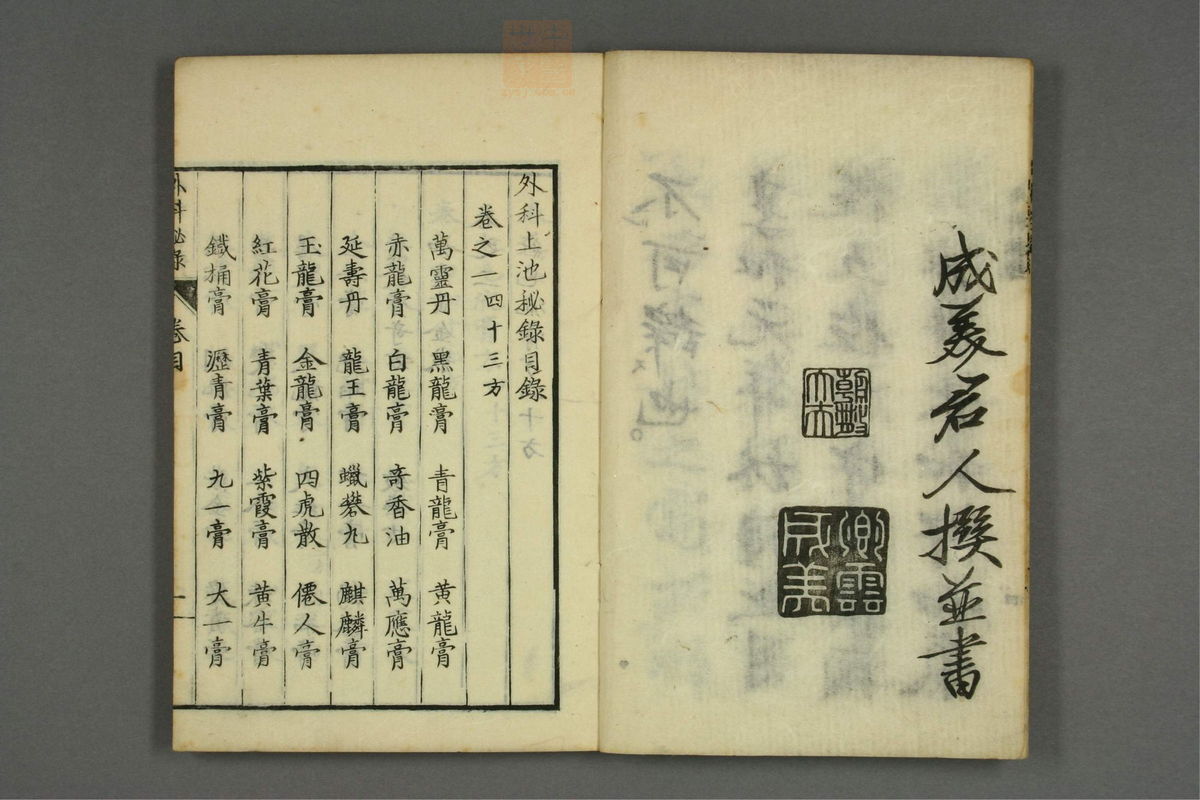 成美君人撰並書
外科上池秘錄目錄
卷之一 四十三方
萬靈丹 黑龍膏 青龍膏 黃龍膏
赤龍膏 白龍膏 奇香油 萬應膏
延壽丹 龍王膏 蠟礬丸 麒麟膏
玉龍膏 金龍膏 四虎散 僊人膏
紅花膏 青葉膏 紫霞膏 黃牛膏
鐵桶膏 瀝青膏 九一膏 大一膏
外科秘錄 卷目 一